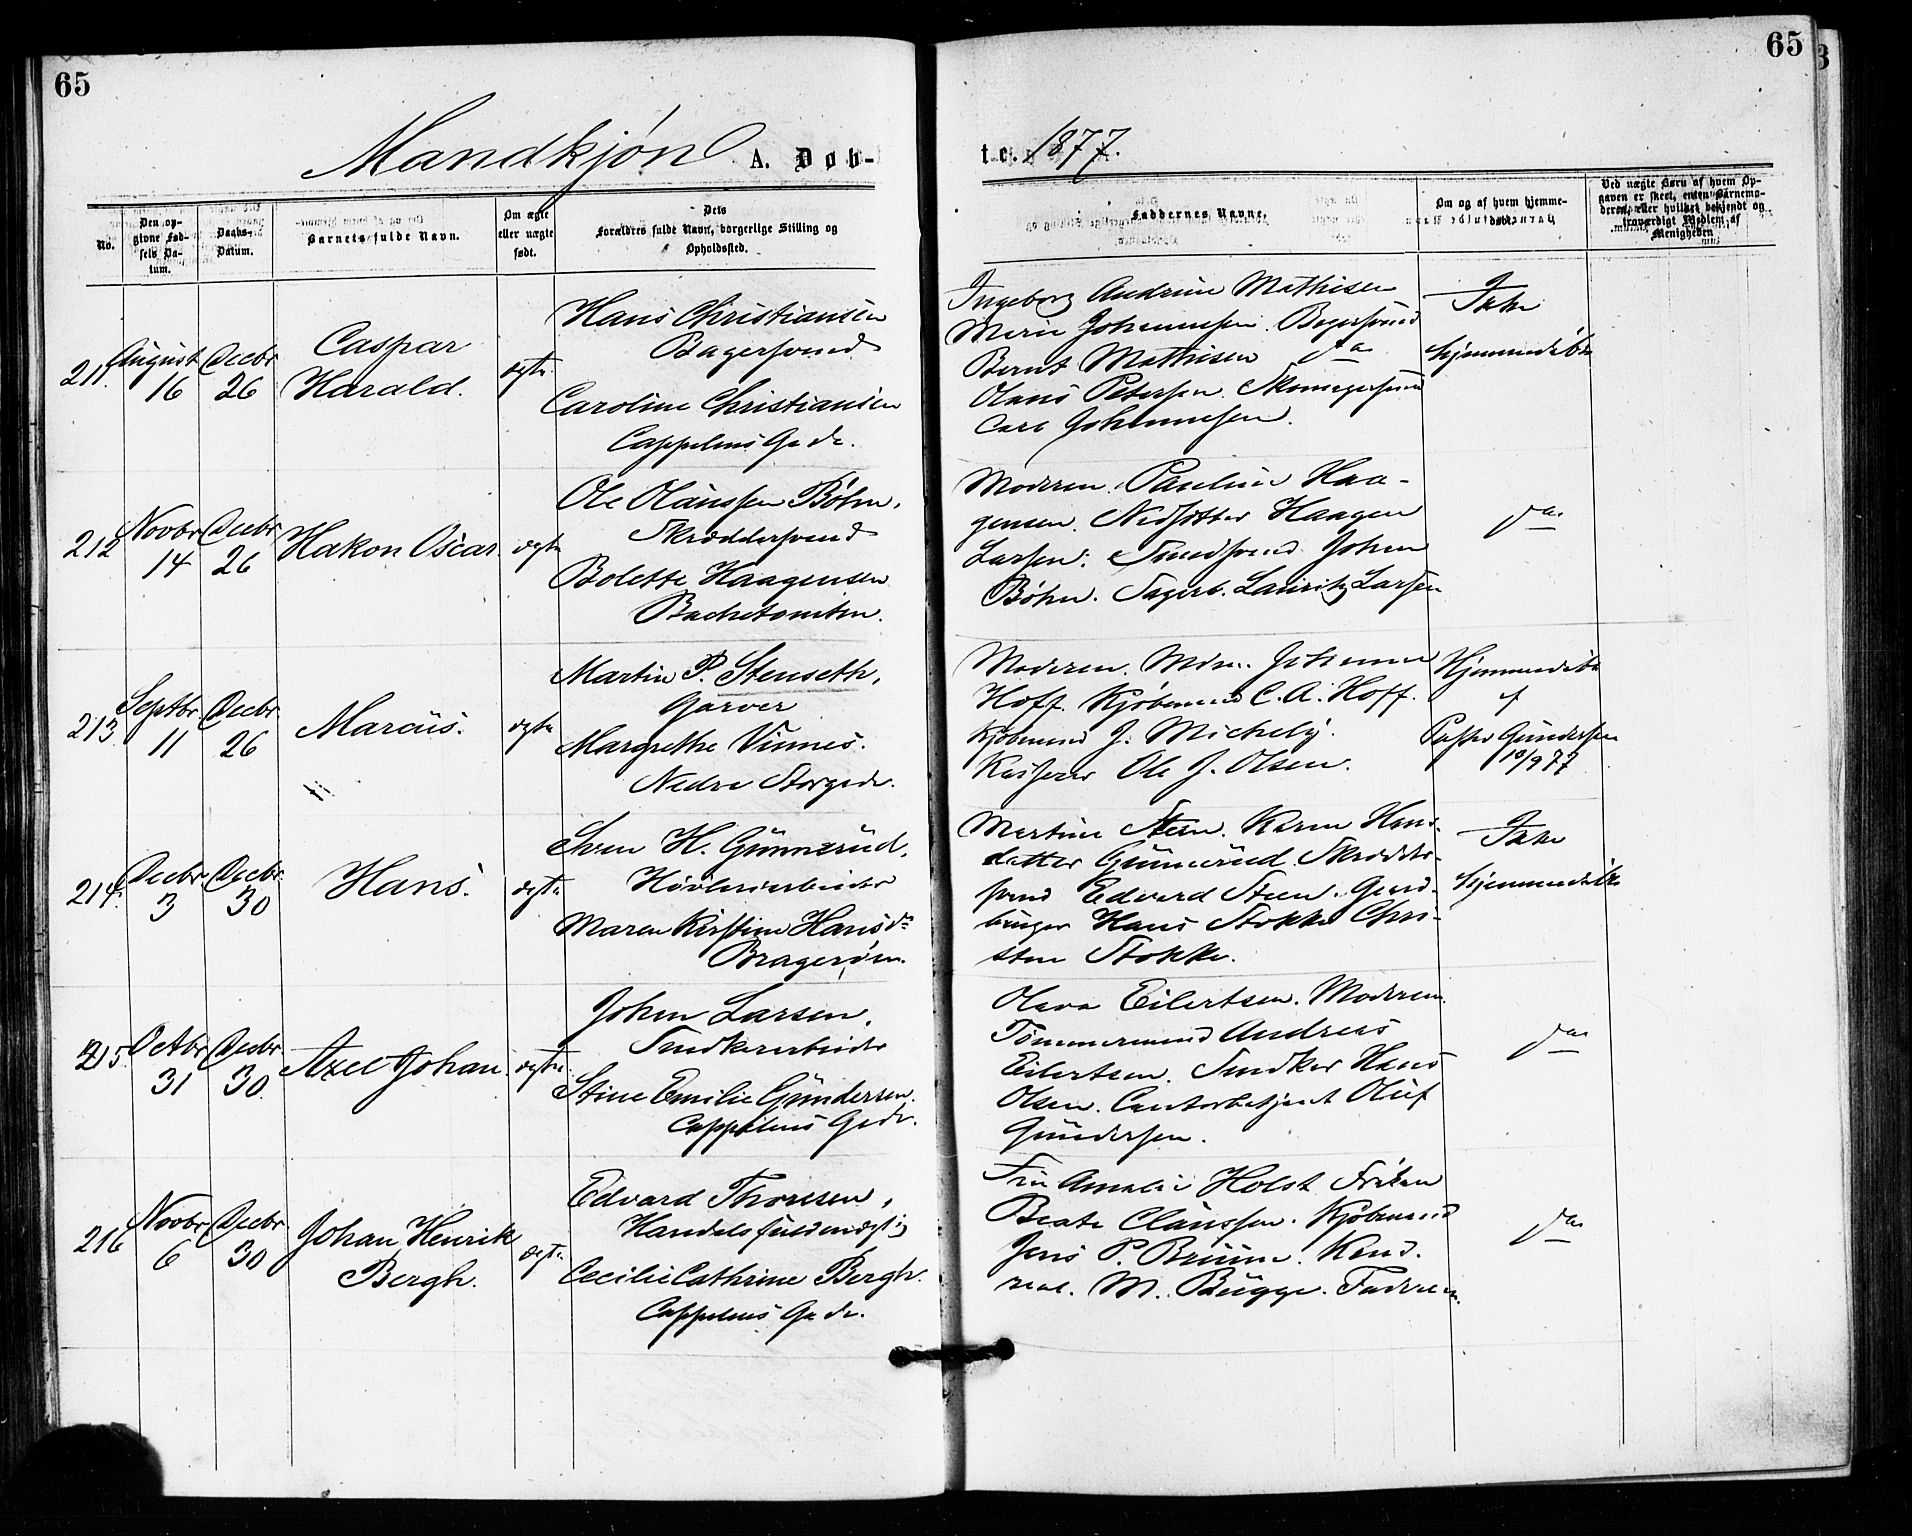 65
Mandkjøn A. Døb-
No.
Den op-
givne Fød-
sels Da-
tum.
Daabs-
Datum.
Barnets fulde Navn.
Om ægte
eller uægte
født.
Dets
Forældres fulde Navn, borgerlige Stilling og
Opholdssted.
211. August 16 Decbr 26
Caspar
Harald.
ægte
Hans Christiansen
Bagersvend
Caroline Christiansen
Cappelens Gade.
212 Novbr 14 Decbr 26
Hakon Oscar
ægte
Ole Olaussen Bøhn,
Skræddersvend
Bolette Haagensen
Bachetomten.
213. Septbr 11 Decbr 26
Marcus.
ægte
Martin P. Stenseth,
Garver
Margrethe Vinnes.
Nedre Storgade.
214. Decbr 3 Decbr. 30
Hans.
ægte
Sven H. Gunnerud,
Høvleriarbeider
Maren Kirstine Hansdr
Bragerøen.
215. Octbr 31 Decbr 30
Axel Johan
ægte
Johan Larsen,
Snedkerarbeider
Stine Emilie Gundersen.
Cappelens Gade.
216 Novbr 6 Decbr 30
Johan Henrik
Bergh.
ægte
Edvard Thoresen,
Handelsfuldmægtig
Cecilie Cathrine Bergh.
Cappelens Gade.
65
te. 1877.
Faddernes Navne.
Om og af hvem hjemme-
døbt.
Ved uægte Børn af hvem Op-
gaven er skeet, enten Barnemo-
deren, eller hvilket bekjendt og
troværdigt Medlem af
Menigheden
Ingeborg Andrine Mathisen
Marie Johannesen. Bagersvend
Bernt Mathisen do
Olaus Petersen. Skomagersvend
Carl Johannesen.
Ikke
hjemmedøbt
Moderen. Pauline Haa-
gensen. Haagen
Larsen. Smedsvend Johan
Bøhn. Sagarb. Lauritz Larsen
do
Moderen. Johanne
Hoff. Kjøbmand C. A. Hoff.
Kjøbmand J. Michely.
Kasserer Ole J. Olsen.
Hjemmedøbt
af
Pastor Gundersen
18/9 77
Martine Steen. Karen Hans-
datter Gunnerud. Skrædder-
svend Edvard Steen. Gaard-
bruger Hans Stokke Chri-
sten Stokke.
Ikke
hjemmedøbt
Olava Eilertsen. Moderen.
Tømmermand Andreas
Eilertsen. Snedker Hans
Olsen. Contorbetjent Oluf
Gundersen.
do
Fru Amalie Holst Frøken
Beate Claussen. Kjøbmand
Jens P. Bruun. Kand.
real. M. Bugge. Faderen.
do